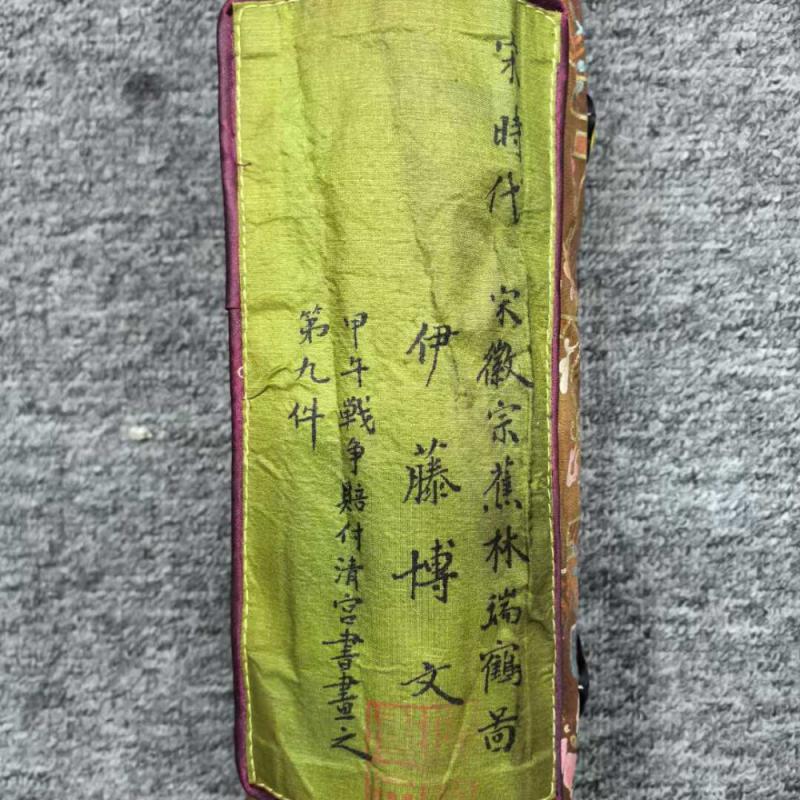 宋時代 宋徽宗蕉林端鶴啚
伊藤博文
甲午戰争賠付清宮書畫之
第九件